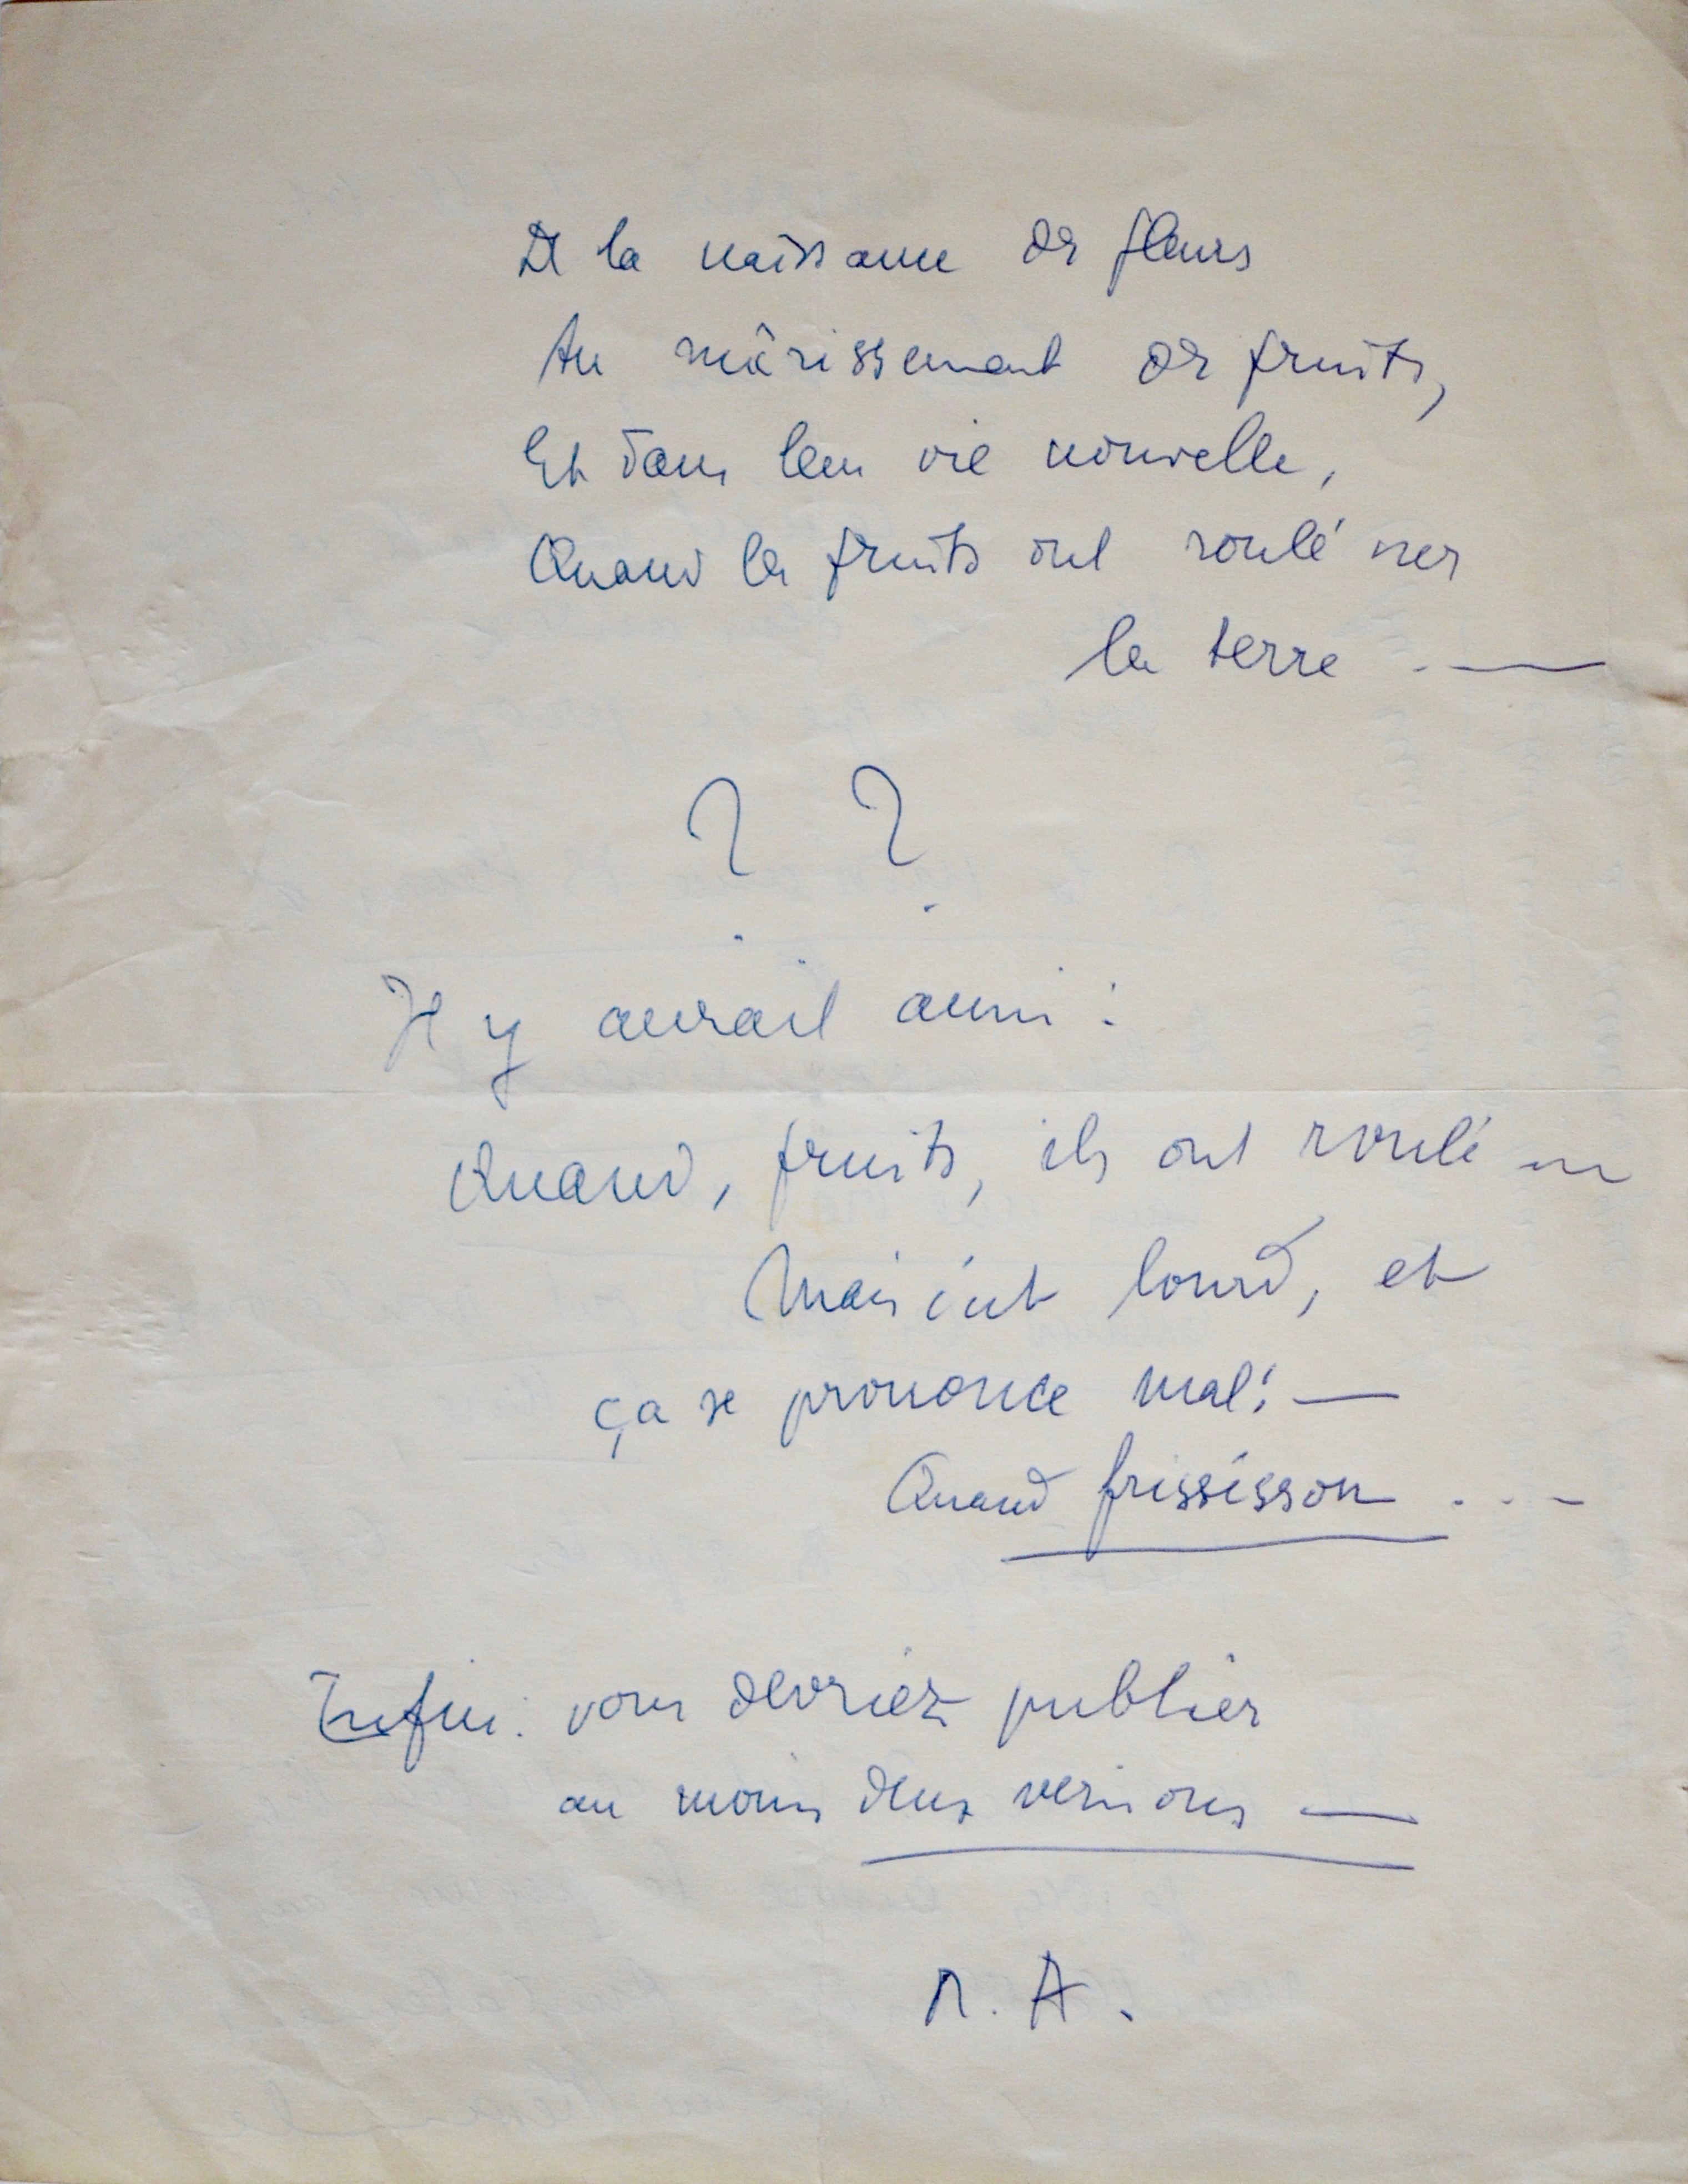 De la naissance des fleurs
Au mûrissement des fruits,
Et dans leur vie nouvelle,
Quand les fruits ont roulé sur
la terre . —
? ?
Il y aurait aussi :
Quand, fruits, ils ont roulé sur
Mais c'est lourd, et
ça se prononce mal : —
Quand frississon . . -
Enfin : vous devriez publier
au moins deux versions —
A. A.